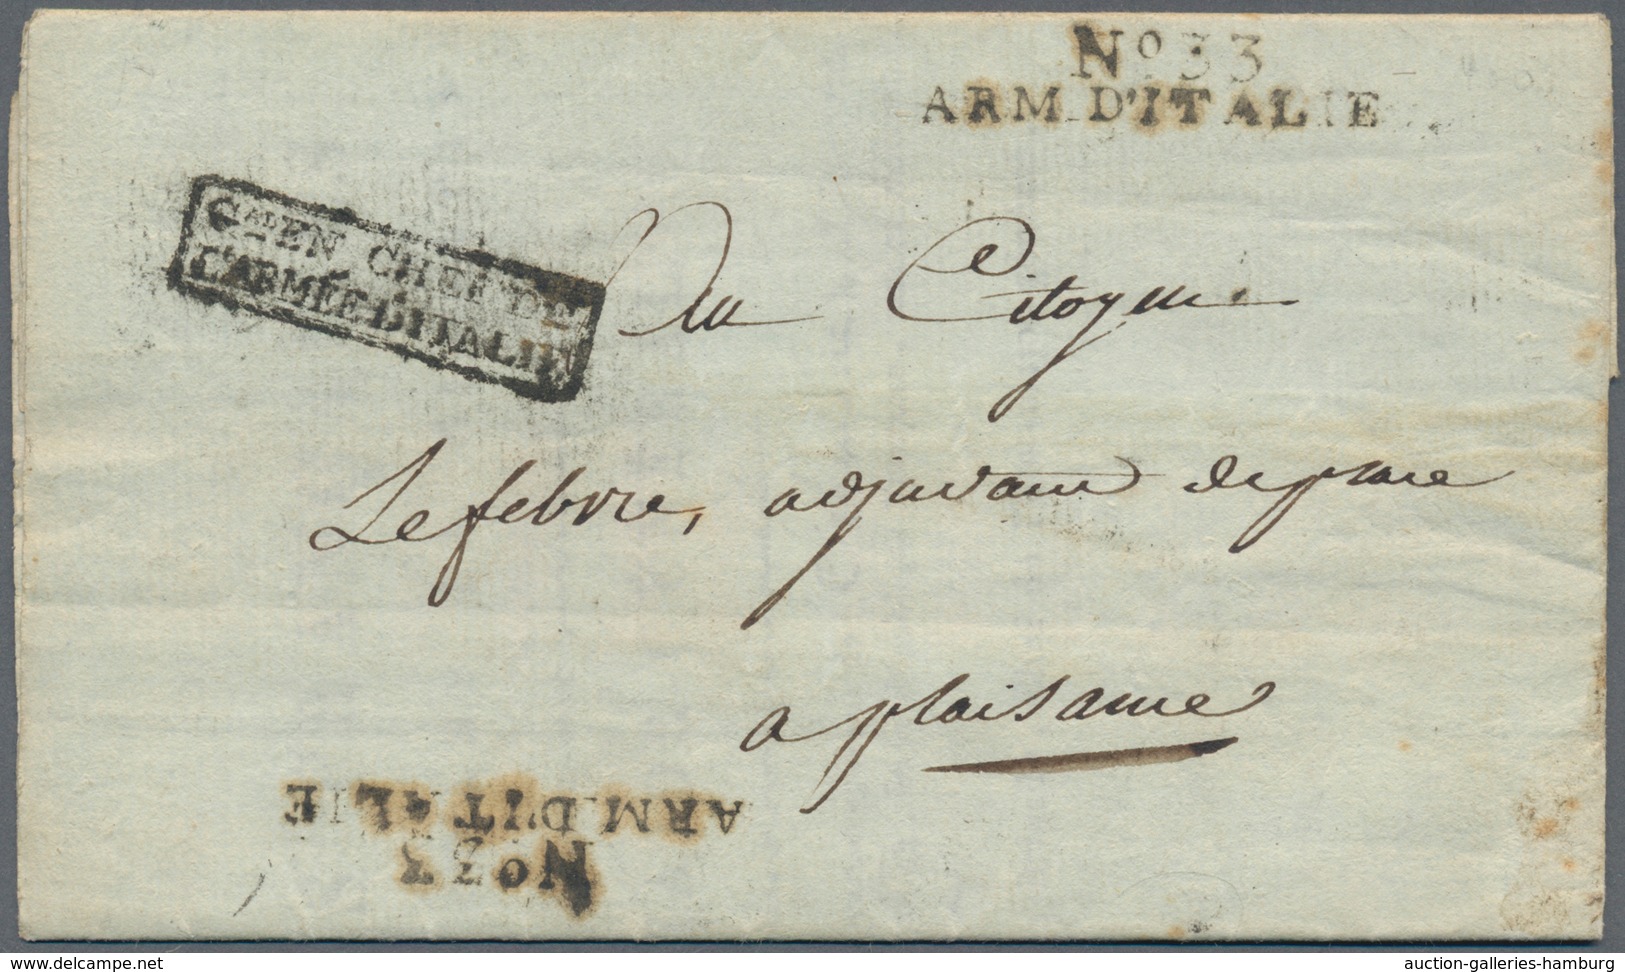 No 33
ARM. D'ITALIE
Gal EN CHEF DE
L'ARMÉE D'ITALIE
Au Citoyen
Lefebvre, adjudant de place
a plaisance
ARM. D'ITALIE
No 33
www.delcampe.net
auction-galleries-hamburg